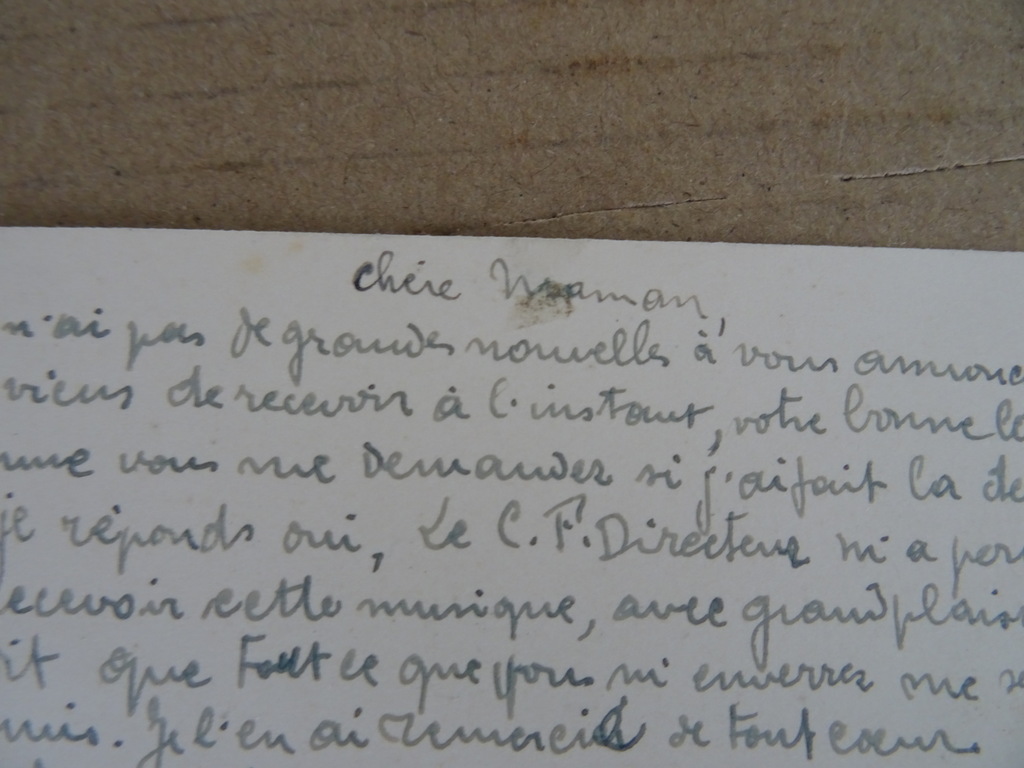 chère Maman,
n'ai pas de grandes nouvelles à vous annonc
viens de recevoir à l'instant, votre bonne le
me vous me demandez si j'ai fait la de
je réponds oui, Le C. F. Directeur m'a per
ecevoir cette musique, avec grand plais
it que tout ce que vous m'enverrez me se
mis. Je l'en ai remercié de tout cœur.